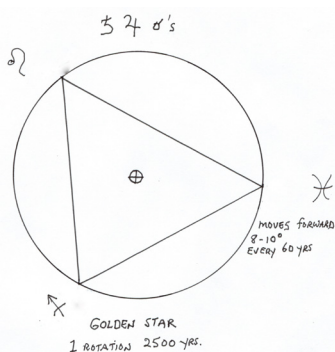 ♄ ♃ ☌'s
♌
⊕
♓
MOVES FORWARD
8-10°
EVERY 60 YRS
♐
GOLDEN STAR
1 ROTATION 2500 YRS.